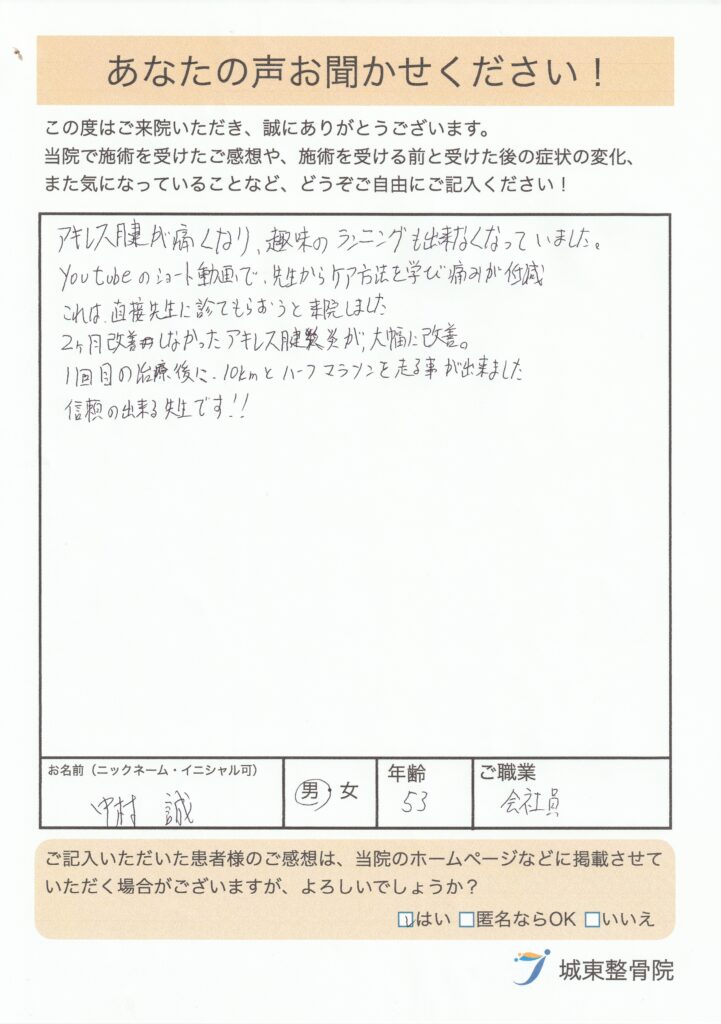 あなたの声お聞かせください！
この度はご来院いただき、誠にありがとうございます。
当院で施術を受けたご感想や、施術を受ける前と受けた後の症状の変化、
また気になっていることなど、どうぞご自由にご記入ください！
アキレス腱が痛くなり、趣味のランニングも出来なくなっていました。
Youtubeのショート動画で、先生からケア方法を学び痛みが低減
これは、直接先生に診てもらおうと来院しました
2ヶ月改善しなかったアキレス腱炎が、大幅に改善。
1回目の治療後に、10kmとハーフマラソンを走る事が出来ました
信頼の出来る先生です!!
お名前（ニックネーム・イニシャル可）
中村 誠
男・女
年齢
53
ご職業
会社員
ご記入いただいた患者様のご感想は、当院のホームページなどに掲載させて
いただく場合がございますが、よろしいでしょうか？
はい 匿名ならOK いいえ
城東整骨院